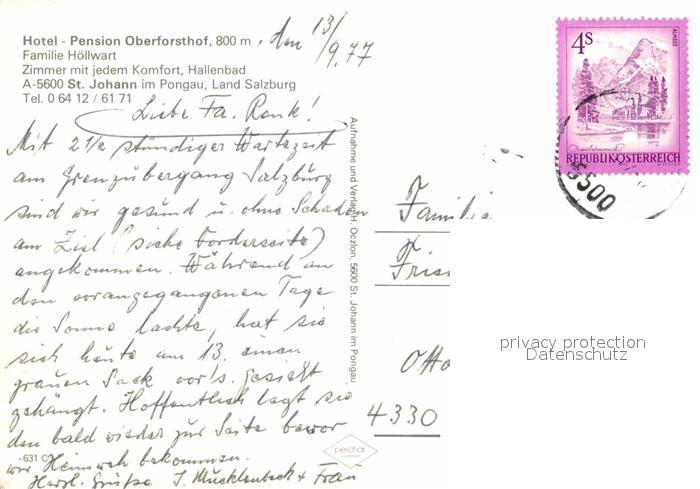 Hotel - Pension Oberforsthof, 800 m
Familie Höllwart
Zimmer mit jedem Komfort, Hallenbad
A-5600 St. Johann im Pongau, Land Salzburg
Tel. 0 64 12 / 61 71
, den 13/9.77
Liebe Fa. Renk!
Mit 2 1/2 stündiger Wartezeit
am Grenzübergang Salzburg
sind wir gesund u. ohne Schaden
am Ziel (siehe Vorderseite)
angekommen. Während an
den vorangegangenen Tage
die Sonne lachte, hat sie
sich heute am 13. einen
grauen Sack vor's Gesicht
gehängt. Hoffentlich legt sie
den bald wieder zur Seite bevor
wir Heimweh bekommen.
Herzl. Grüße J. Mucklenbeck + Frau
631 C
Aufnahme und Verlag H. Oczlon, 5600 St. Johann im Pongau
perchar
4 S
ALMSEE
REPUBLIK ÖSTERREICH
5500
Familie
Fris
Otto
4330
privacy protection
Datenschutz